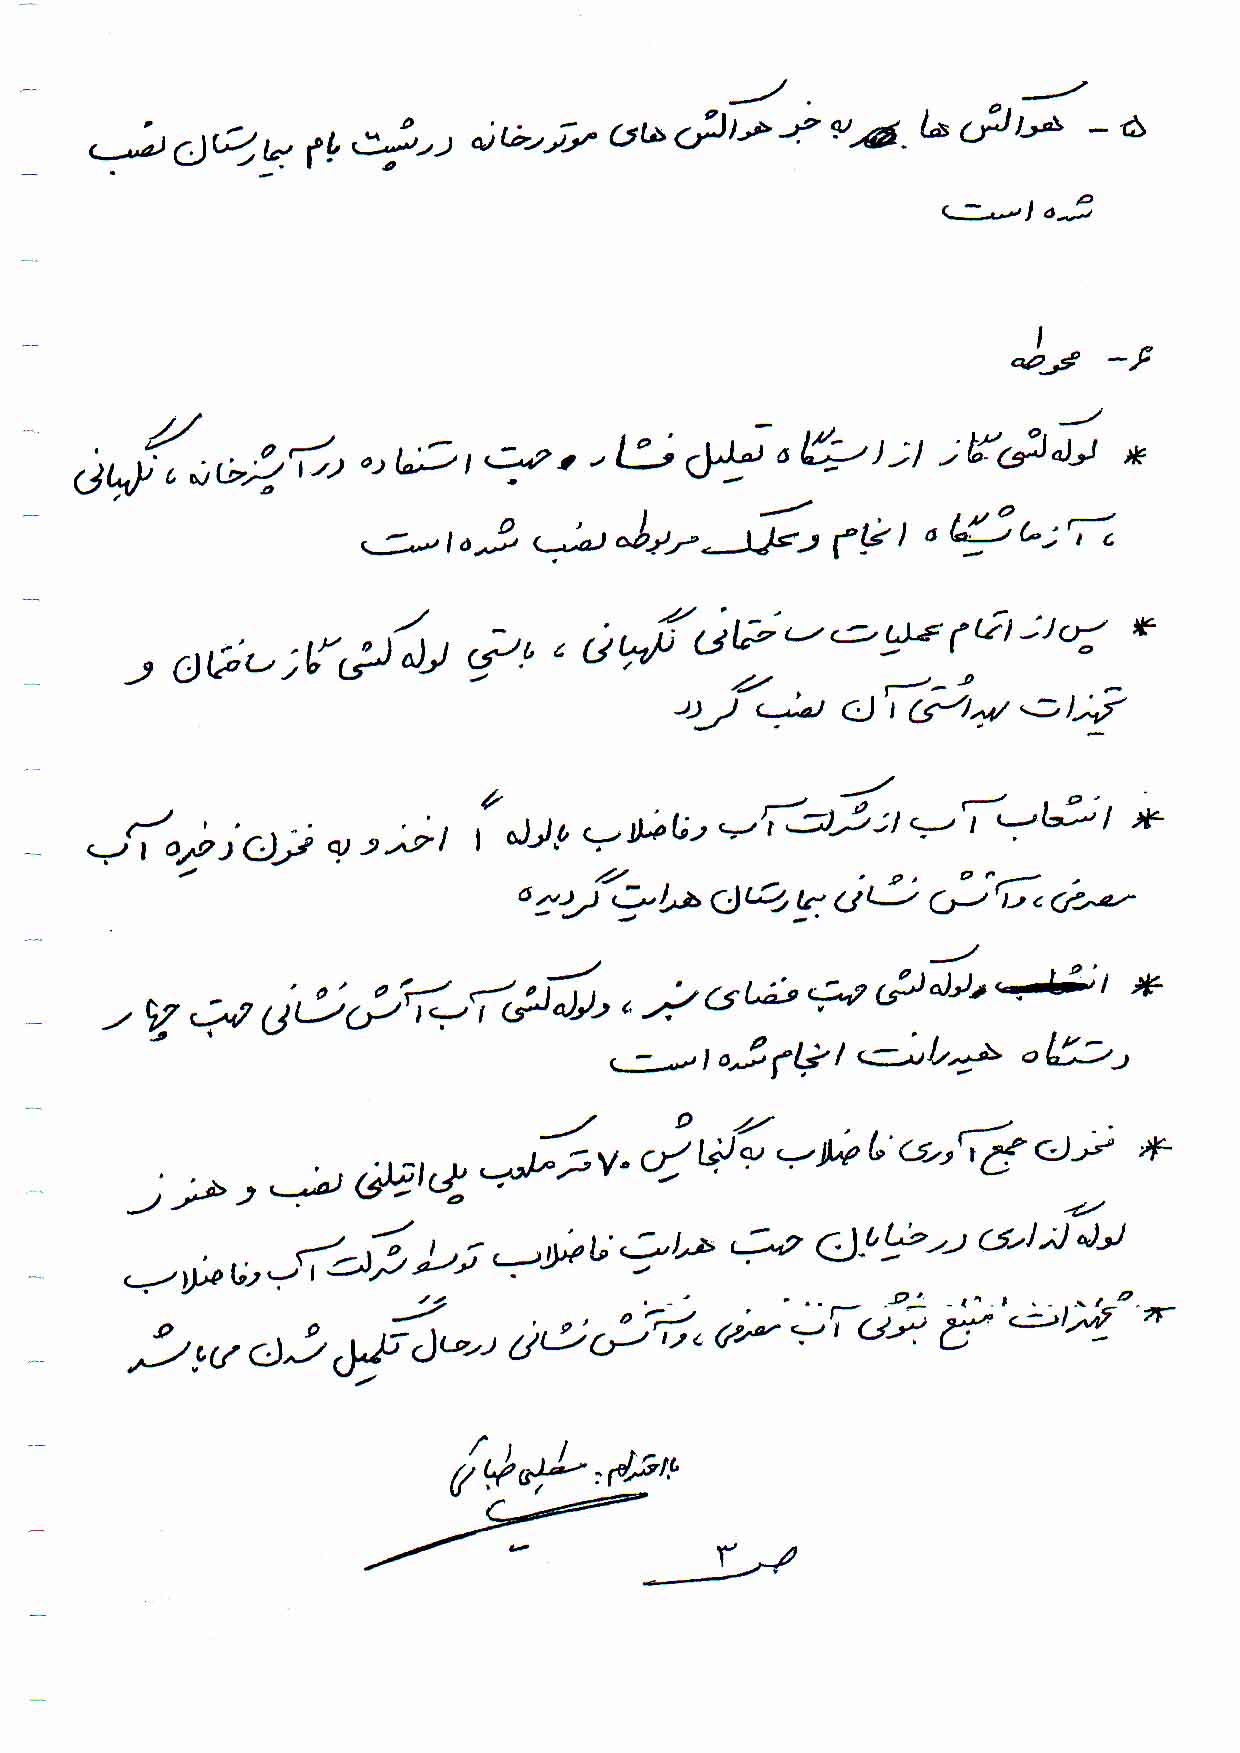 ۵- هواکش ها به جز هواکش های موتورخانه در پشت بام بیمارستان نصب
شده است
۶- محوطه
* لوله کشی گاز از ایستگاه تقلیل فشار و جهت استفاده در آشپزخانه ، نگهبانی
، آزمایشگاه انجام و علمک مربوطه نصب شده است
* پس از اتمام عملیات ساختمانی نگهبانی ، بایستی لوله کشی گاز ساختمان و
تجهیزات بهداشتی آن نصب گردد
* انشعاب آب از شرکت آب و فاضلاب با لوله اخذ و به مخزن ذخیره آب
مصرفی ، و آتش نشانی بیمارستان هدایت گردیده
* لوله کشی جهت فضای سبز ، و لوله کشی آب آتش نشانی جهت چهار
دستگاه هیدرانت انجام شده است
* مخزن جمع آوری فاضلاب به گنجایش ۷۰ متر مکعب پلی اتیلنی نصب و هنوز
لوله گذاری در خیابان جهت هدایت فاضلاب توسط شرکت آب و فاضلاب
* تجهیزات منبع بتونی آب مصرفی ، و آتش نشانی در حال تکمیل شدن می باشد
با احترام :
ص ۳